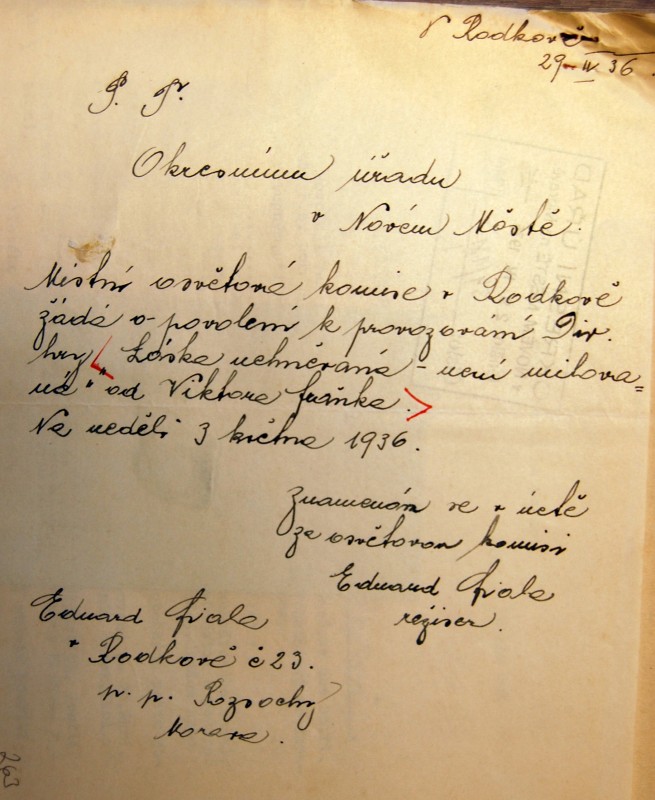 V Rodkově
29 IV 36
P. T.
Okresnímu úřadu
v Novém Městě.
Místní osvětová komise v Rodkově
žádá o povolení k provozování Div.
hry „Láska uchněraná – není milova=
ná" od Viktora Fraňka.
Na neděli 3 května 1936.
znamenám se v úctě
za osvětovou komisi
Eduard Fiala
režiser.
Eduard Fiala
v Rodkově č 23.
p. p. Rozsochy
Morava.
263